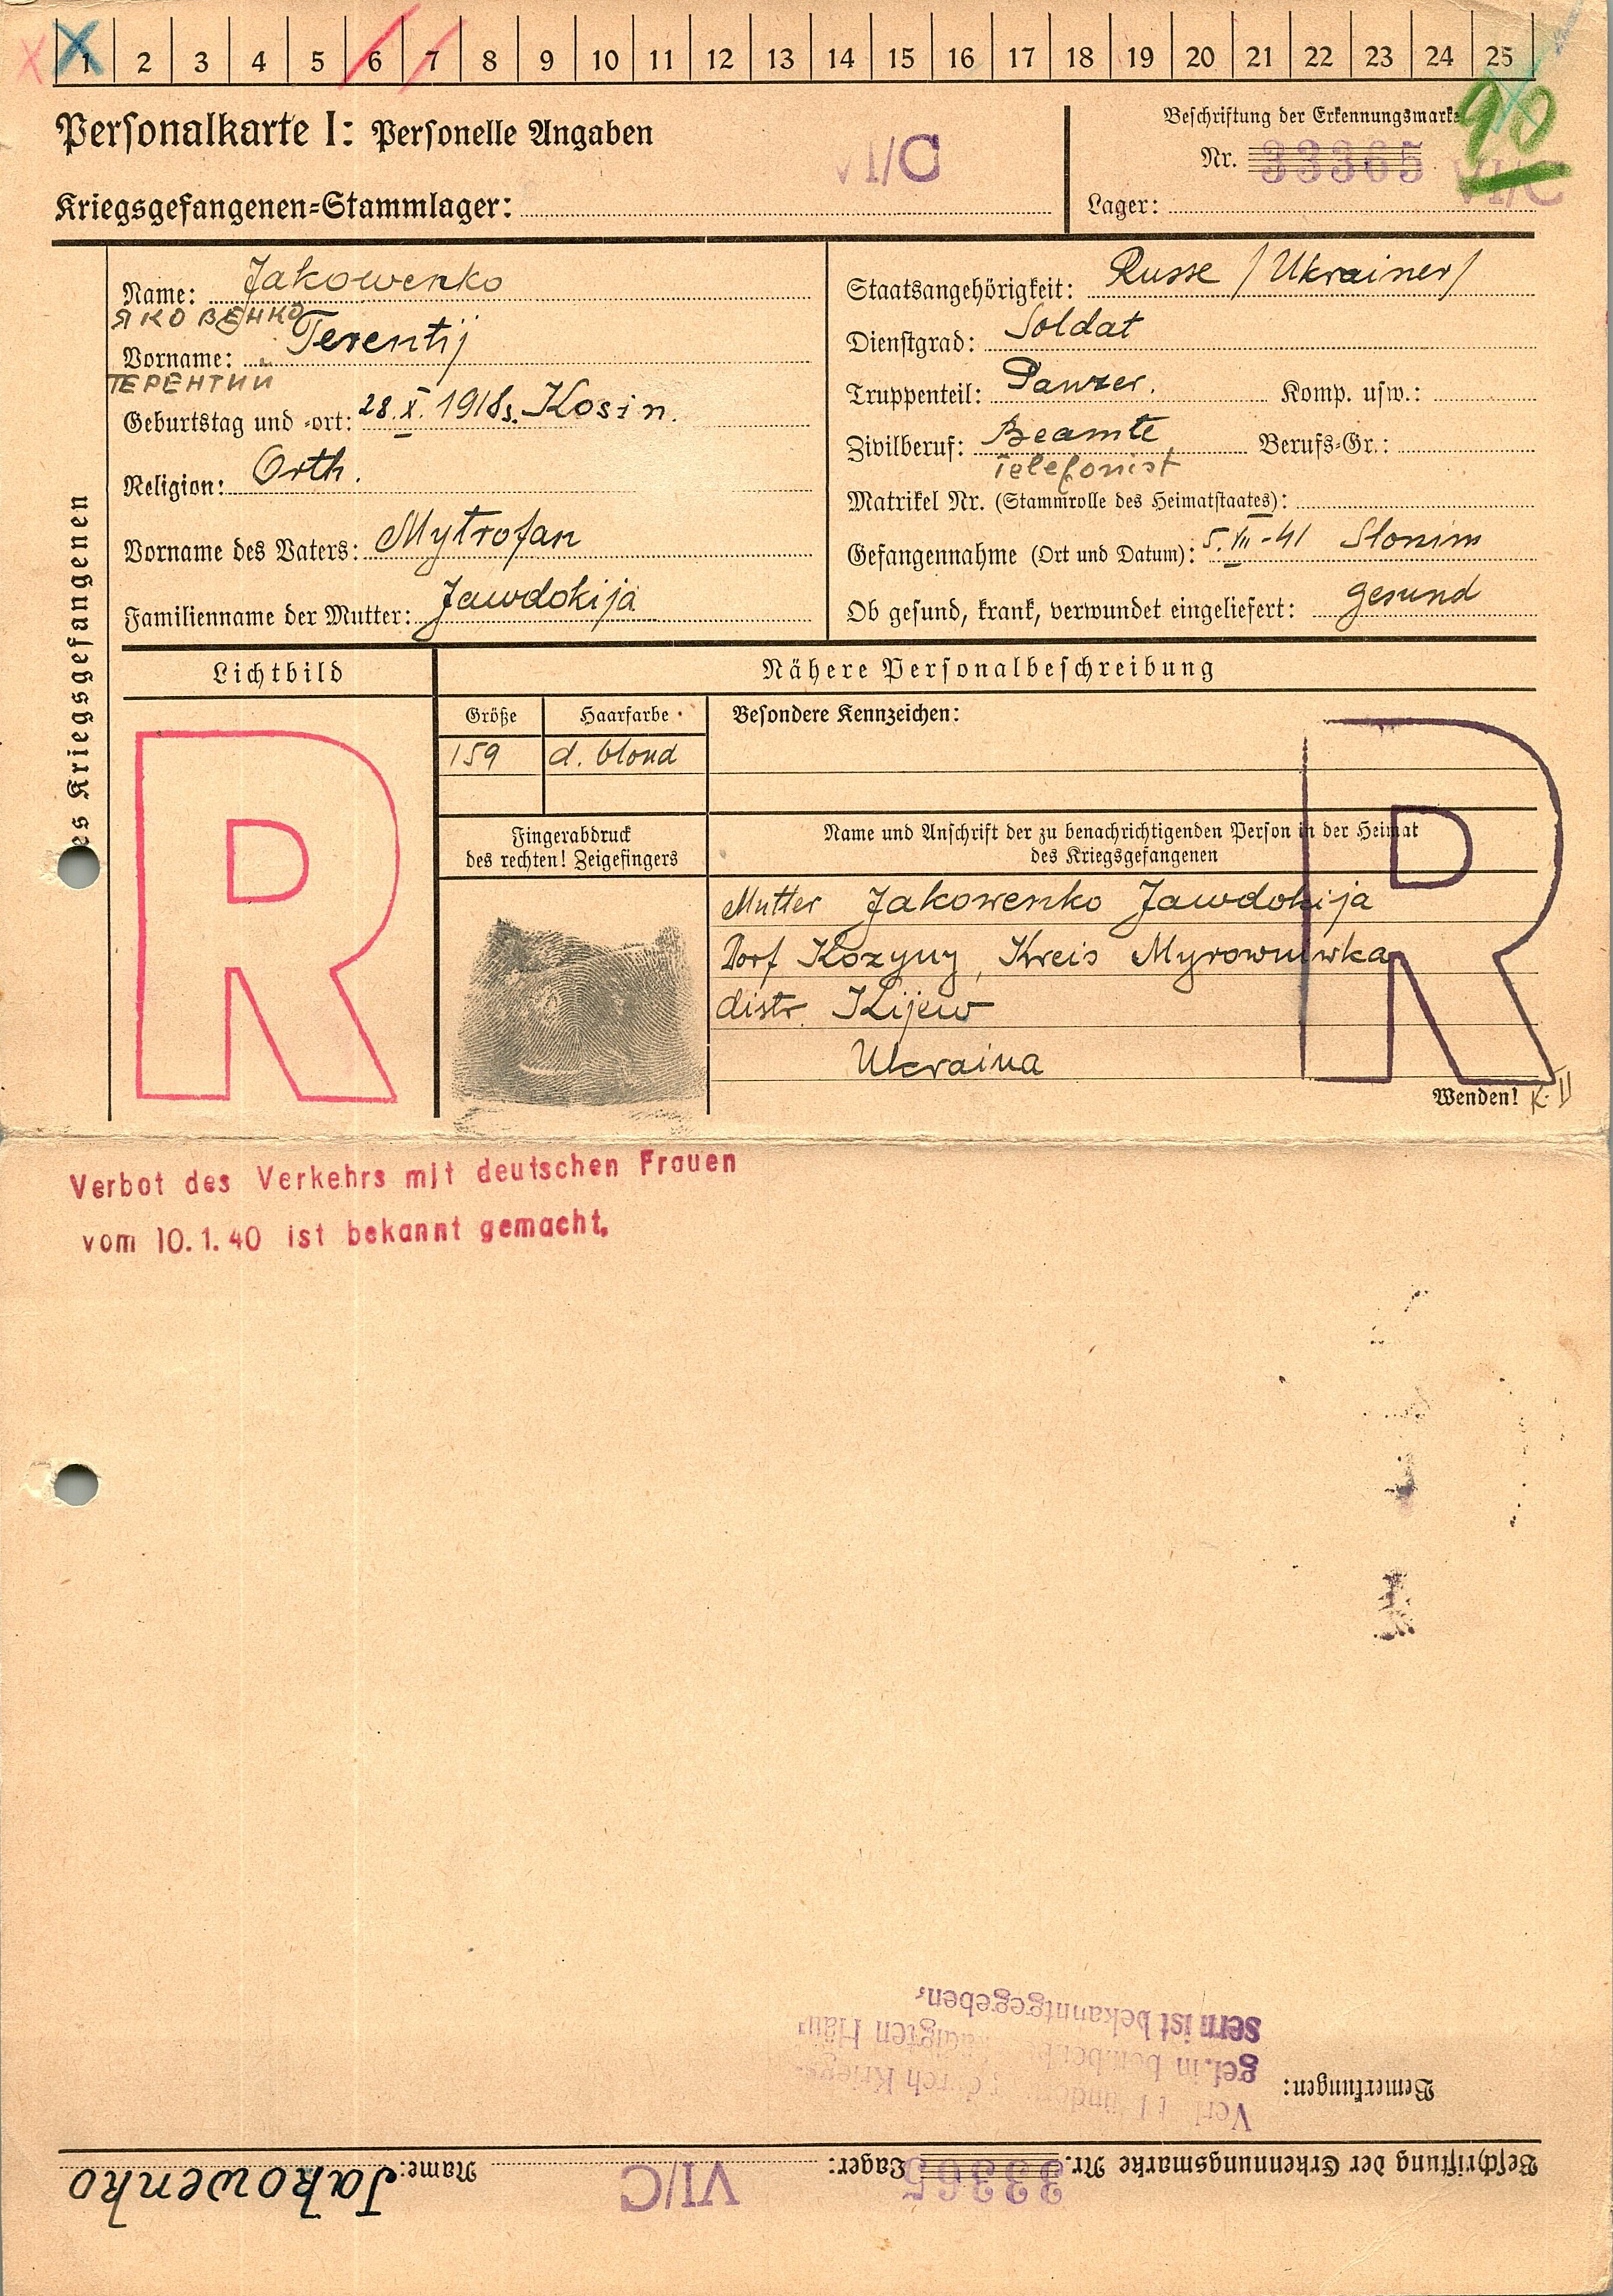 1 2 3 4 5 6 7 8 9 10 11 12 13 14 15 16 17 18 19 20 21 22 23 24 25
Personalkarte I: Personelle Angaben
VI/C
Kriegsgefangenen-Stammlager:
Beschriftung der Erkennungsmarke
90
Nr. 33365
VI/C
Lager:
des Kriegsgefangenen
Name: Jakowenko
ЯКОВЕНКО
Vorname: Terentij
ТЕРЕНТИЙ
Geburtstag und -ort: 28.X.1918. Kosin.
Religion: Orth.
Vorname des Vaters: Mytrofan
Familienname der Mutter: Jawdokija
Staatsangehörigkeit: Russe /Ukrainer/
Dienstgrad: Soldat
Truppenteil: Panzer. Komp. usw.:
Zivilberuf: Beamte Berufs-Gr.:
Telefonist
Matrikel Nr. (Stammrolle des Heimatstaates):
Gefangennahme (Ort und Datum): 5.VII-41 Slonim
Ob gesund, krank, verwundet eingeliefert: gesund
Lichtbild
R
Nähere Personalbeschreibung
Größe
Haarfarbe
159
d. blond
Besondere Kennzeichen:
Fingerabdruck
des rechten! Zeigefingers
Name und Anschrift der zu benachrichtigenden Person in der Heimat
des Kriegsgefangenen
Mutter Jakowenko Jawdokija
Dorf Kozyny, Kreis Myrowniwka
distr. Kijew
Ukraina
R
Wenden! K. II
Verbot des Verkehrs mit deutschen Frauen
vom 10.1.40 ist bekannt gemacht.
Bemerkungen:
durch Kriegs-
gef. in
sern ist bekanntgegeben.
Beschriftung der Erkennungsmarke Nr. 33365 Lager: VI/C Name: Jakowenko